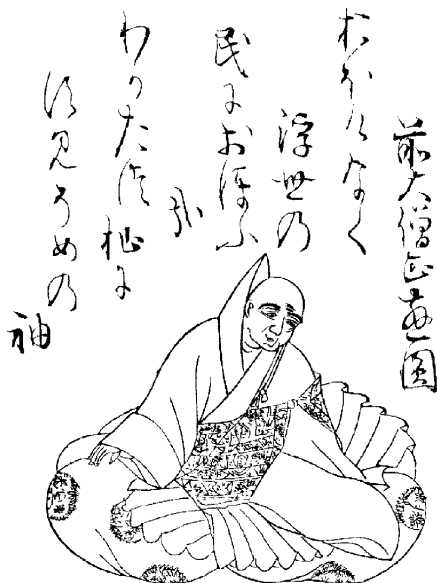 前大僧正慈圓
おほけなく
浮世乃
民におほふ
哉
わかたつ杣に
すみそめの
袖